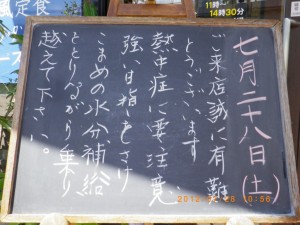 七月二十八日(土)
ご来店誠に有難
とうございます
熱中症に要注意
強い日差しをさけ
こまめの水分補給
ととりべがり乗り
越えて下さい。
風定食
11時
14時30分
2012 7 28 10:56